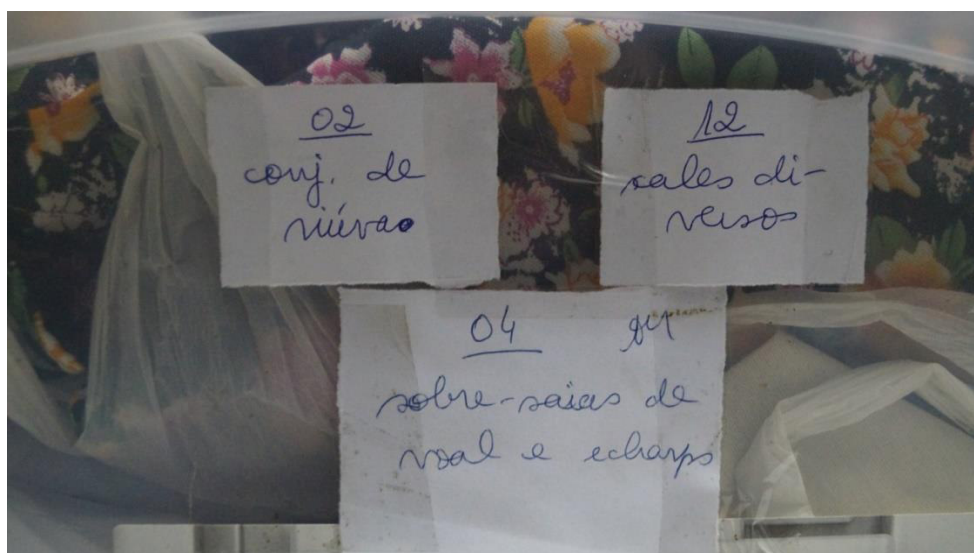 02
conj. de
viúvas
12
xales di-
versos
04
sobre-saias de
voal e echarps